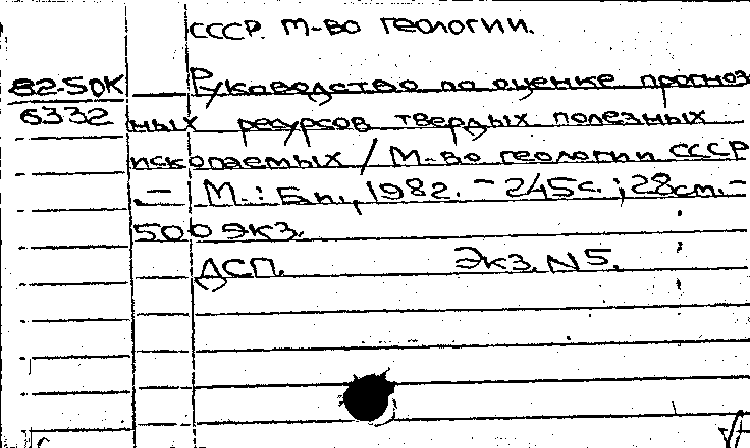 СССР. М-во геологии.
82-5ОК
6332
Руководство по оценке прогноз
ных ресурсов твердых полезных
ископаемых / М-во геологии СССР
.— М.: Б.и., 1982. - 245с.; 28см. -
500 экз.
ДСП. Экз. N5.